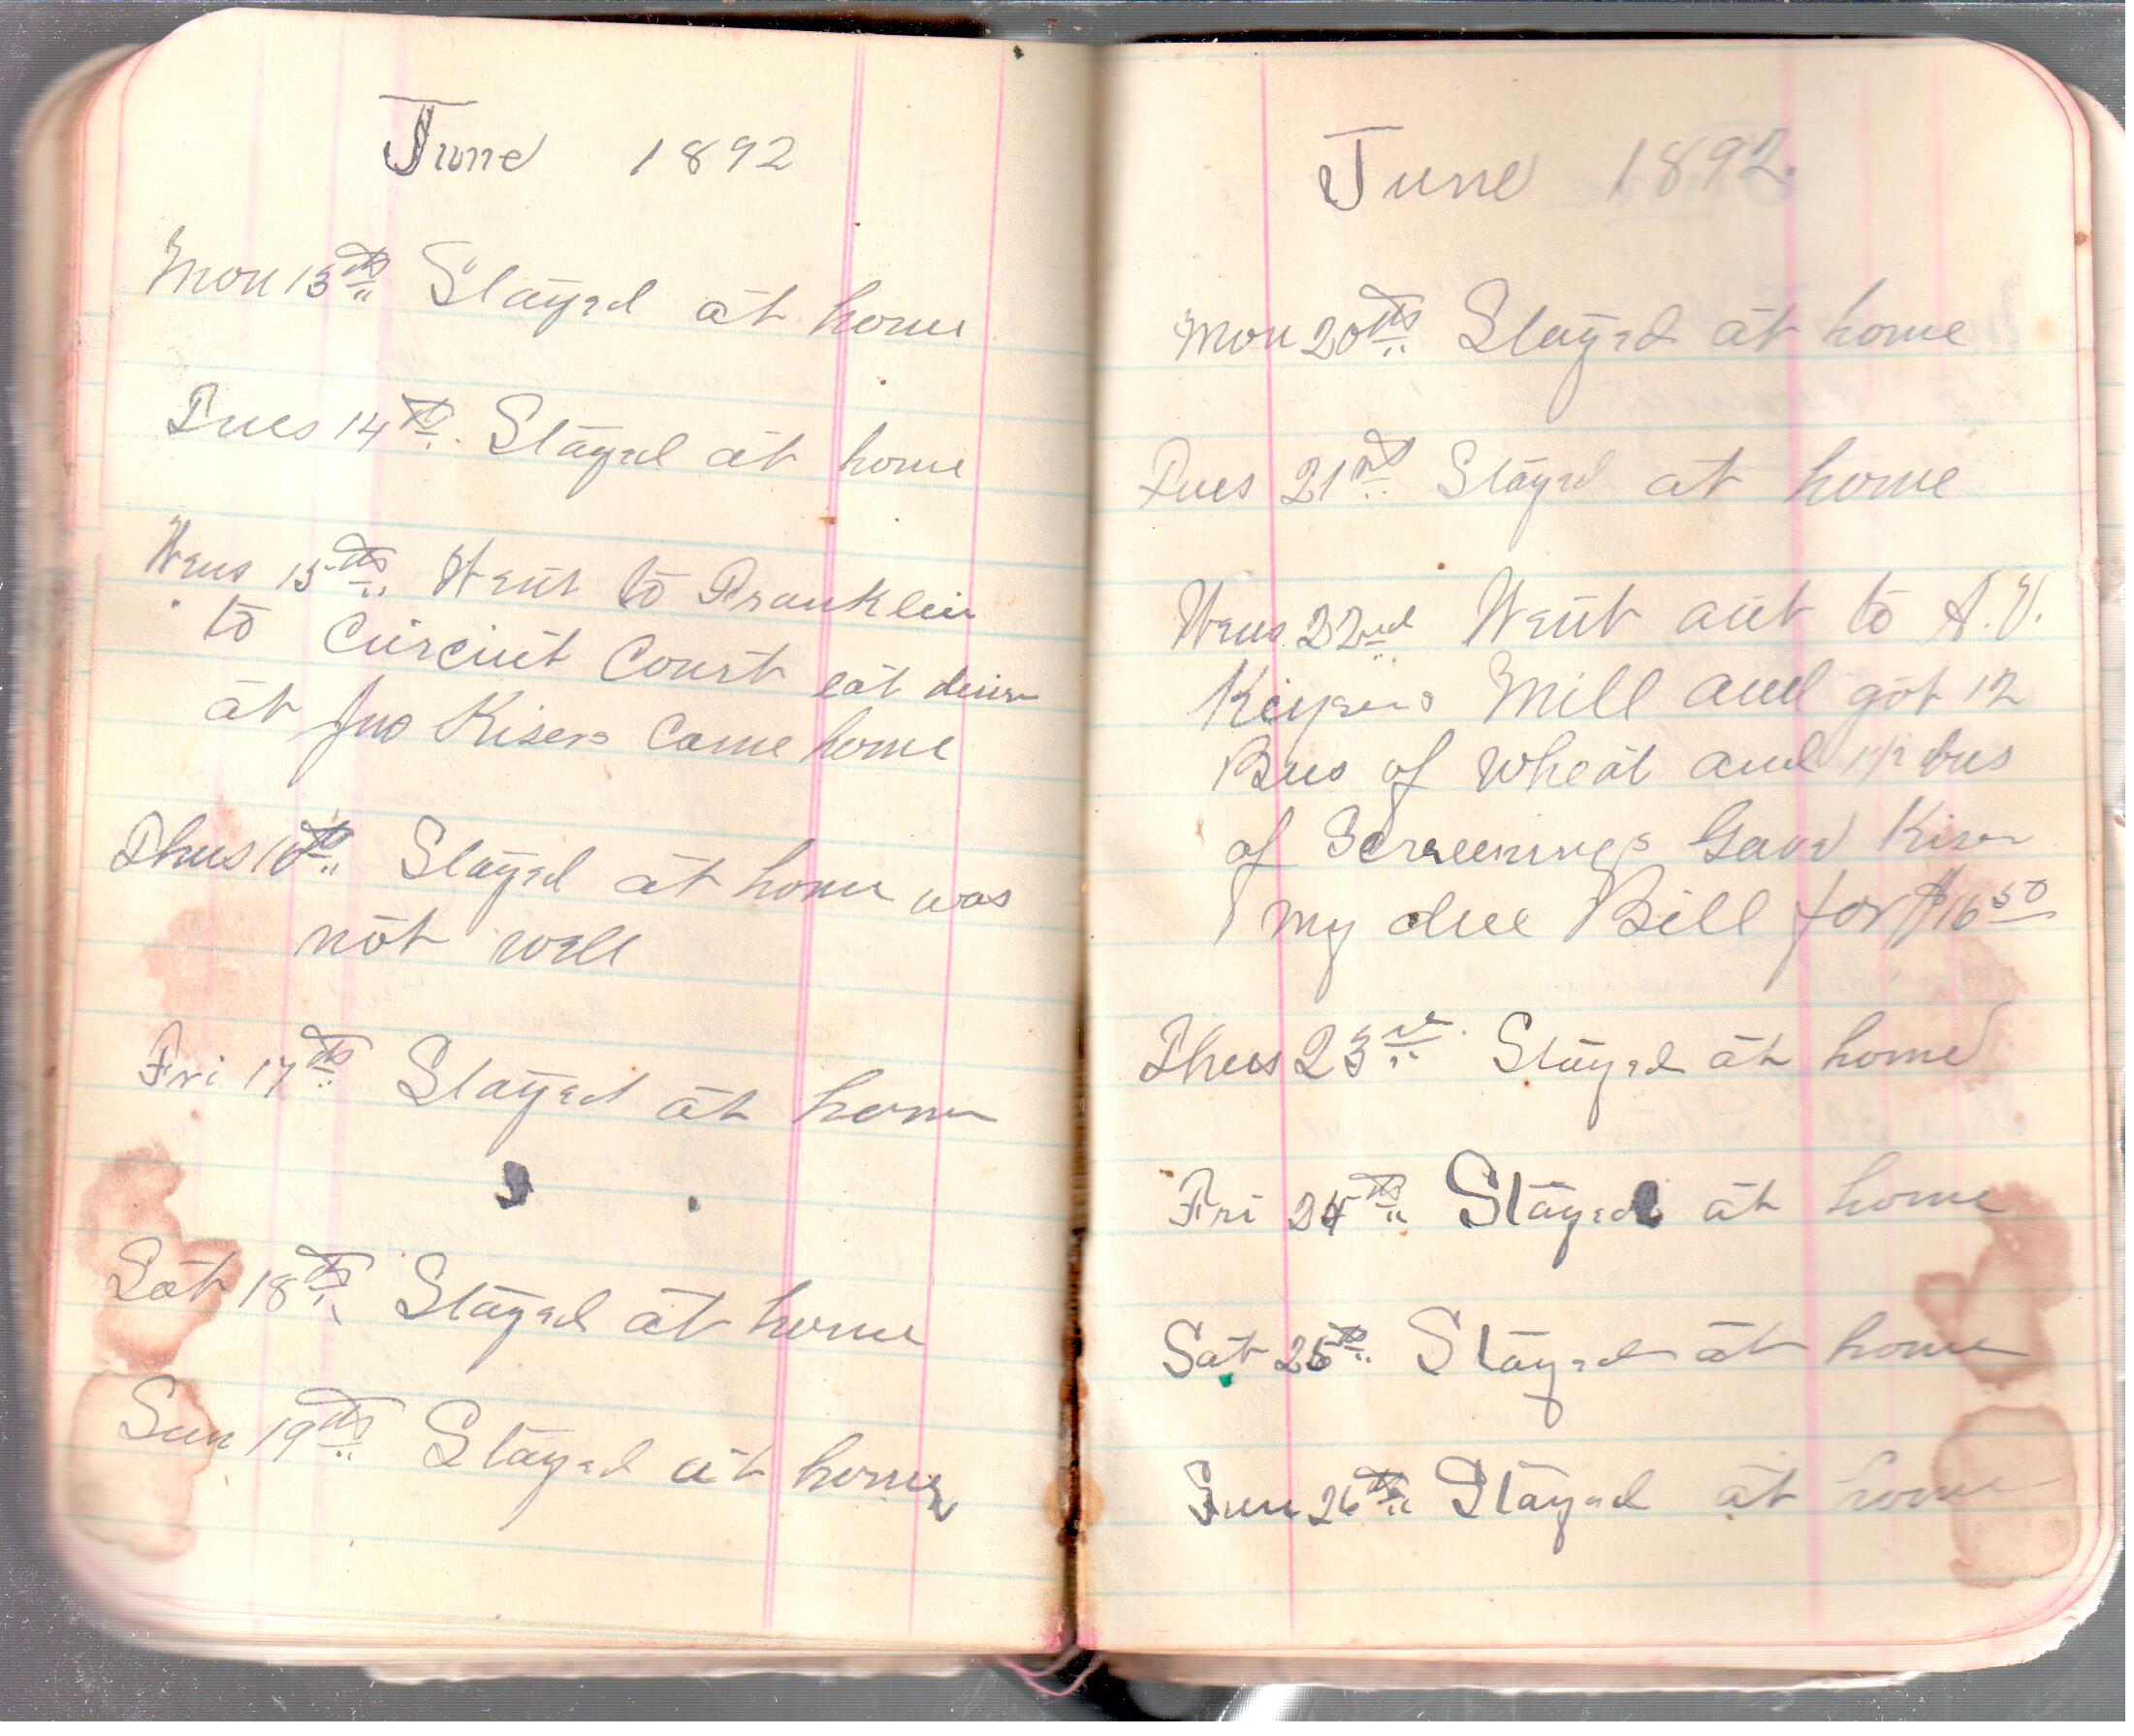 June 1892
Mon 13th Stayed at home
Tues 14th. Stayed at home
Wens 15th. Went to Franklin
to Curcuit Court eat diner
at Jno Kisers Came home
Thus 16th Stayed at home was
not well
Fri 17th Stayed at home
Sat 18th Stayed at home
Sun 19th Stayed at home
June 1892.
Mon 20th Stayed at home
Tues 21st Stayed at home
Wens 22nd Went out to A.
Mill and got 12
Bus of Wheat and 1 1/2 bus
of Screenings Gave Kiser
my due Bill for $16 50
Thus 23rd. Stayed at home
Fri 24th Stayed at home
Sat 25th Stayed at home
Sun 26th Stayed at home